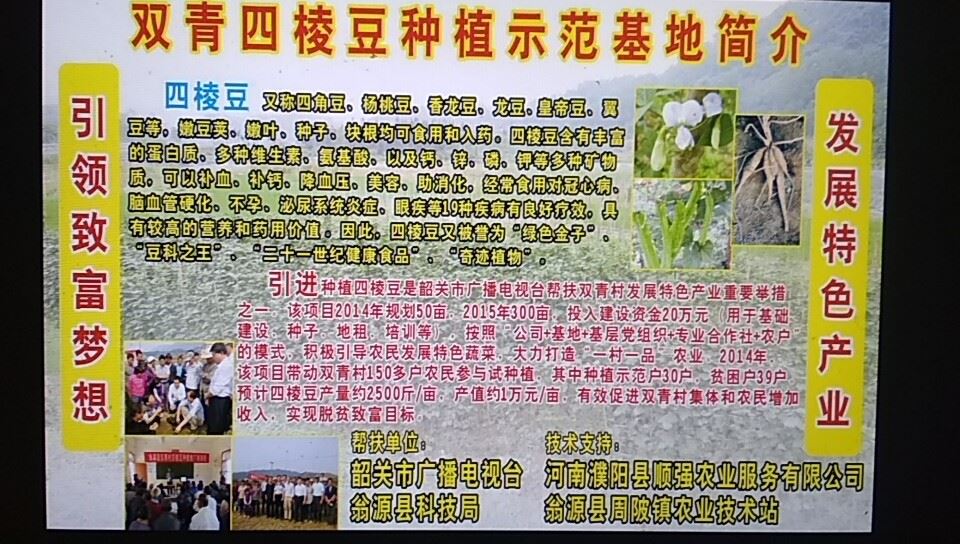 双青四棱豆种植示范基地简介
引领致富梦想
四棱豆 又称四角豆、杨桃豆、香龙豆、龙豆、皇帝豆、翼
豆等，嫩豆荚、嫩叶、种子、块根均可食用和入药。四棱豆含有丰富
的蛋白质、多种维生素、氨基酸、以及钙、锌、磷、钾等多种矿物
质，可以补血、补钙、降血压、美容、助消化，经常食用对冠心病、
脑血管硬化、不孕、泌尿系统炎症、眼疾等19种疾病有良好疗效，具
有较高的营养和药用价值。因此，四棱豆又被誉为“绿色金子”、
“豆科之王”、“二十一世纪健康食品”、“奇迹植物”。
引进种植四棱豆是韶关市广播电视台帮扶双青村发展特色产业重要举措
之一，该项目2014年规划50亩，2015年300亩，投入建设资金20万元（用于基础
建设、种子、地租、培训等），按照“公司+基地+基层党组织+专业合作社+农户”
的模式，积极引导农民发展特色蔬菜，大力打造“一村一品”农业，2014年，
该项目带动双青村150多户农民参与试种植，其中种植示范户30户，贫困户39户，
预计四棱豆产量约2500斤/亩，产值约1万元/亩，有效促进双青村集体和农民增加
收入，实现脱贫致富目标。
发展特色产业
帮扶单位：
韶关市广播电视台
翁源县科技局
技术支持：
河南濮阳县顺强农业服务有限公司
翁源县周陂镇农业技术站